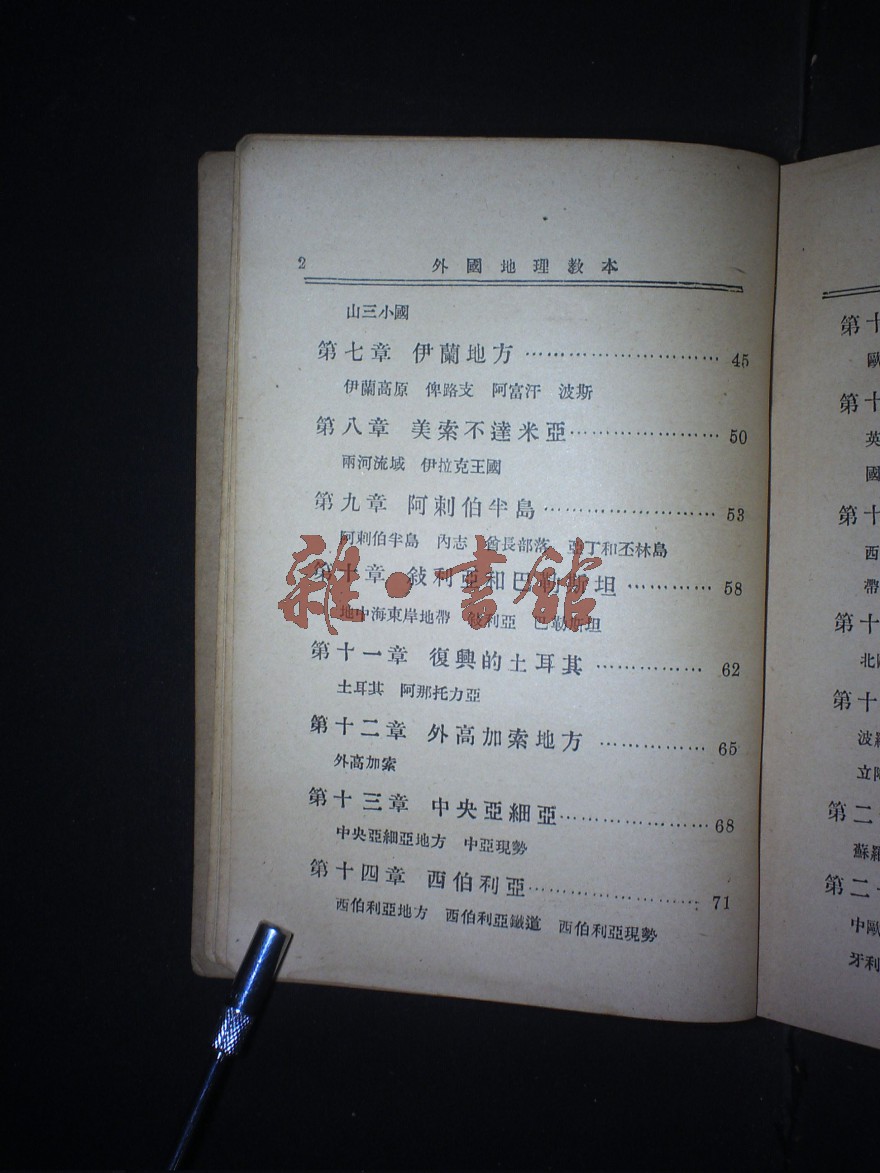 2 外國地理教本
山三小國
第七章 伊蘭地方 ……………………… 45
伊蘭高原 俾路支 阿富汗 波斯
第八章 美索不達米亞 ………………… 50
兩河流域 伊拉克王國
第九章 阿剌伯半島 …………………… 53
阿剌伯半島 內志 酋長部落 亞丁和丕林島
第十章 敍利亞和巴勒斯坦 ………… 58
地中海東岸地帶 敍利亞 巴勒斯坦
第十一章 復興的土耳其 …………… 62
土耳其 阿那托力亞
第十二章 外高加索地方 …………… 65
外高加索
第十三章 中央亞細亞 ………………… 68
中央亞細亞地方 中亞現勢
第十四章 西伯利亞 …………………… 71
西伯利亞地方 西伯利亞鐵道 西伯利亞現勢
雜·書館
第十
歐
第十
英
國
第十
西
帶
第十
北歐
第十
波羅
立陶
第二
蘇羅
第二十
中歐
牙利